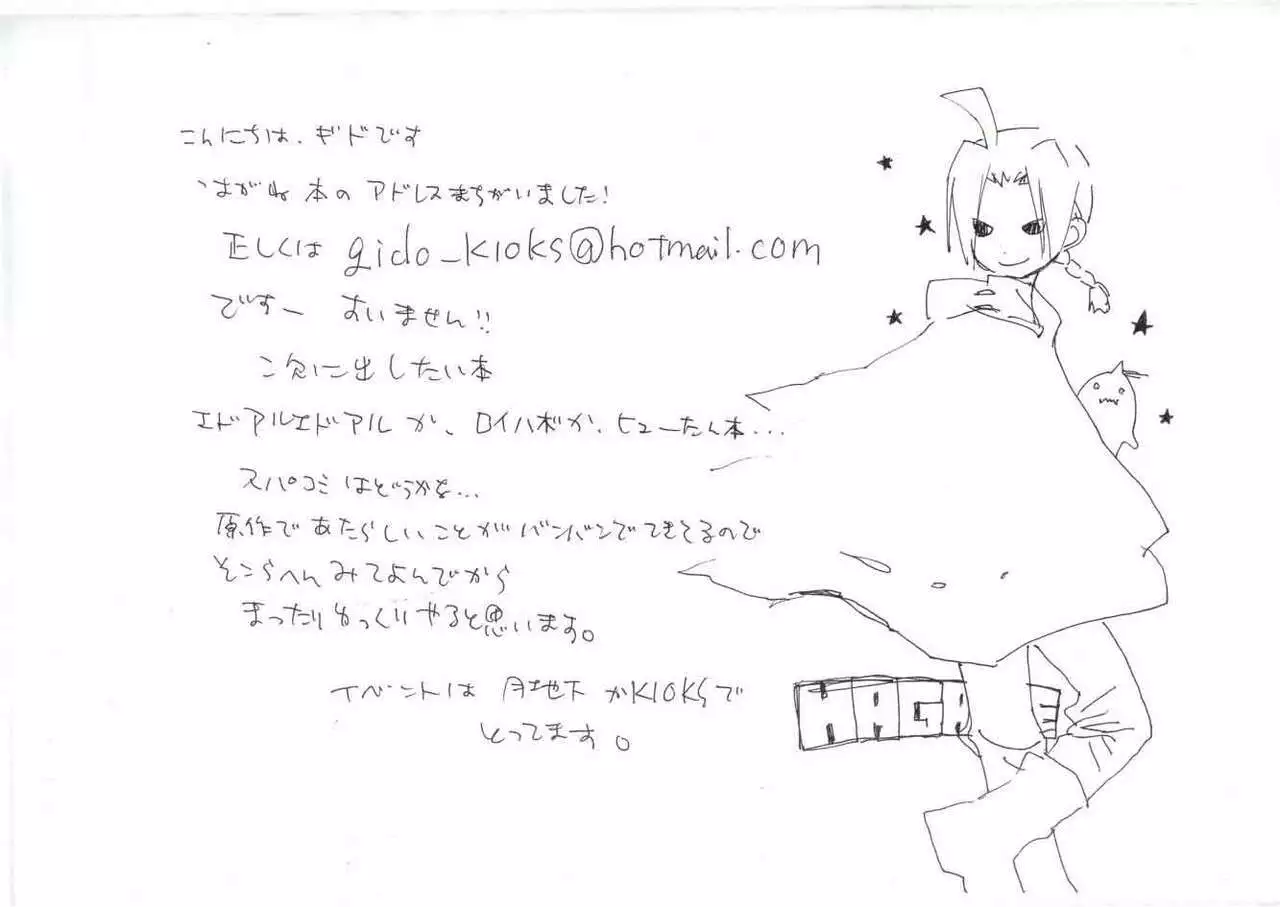 こんにちは、ギドです
はがね本のアドレスまちがいました!
正しくは gido_kioks@hotmail.com
ですー すいません!!
次に出したい本
エドアルエドアルか、ロイハボか、ヒューたん本...
スパコミはどうかな...
原作であたらしいことがバンバンでてきてるので
そこらへんみてよんでから
まったりゆっくりやると思います。
イベントは 月地下 かKIOKSで
とってます。